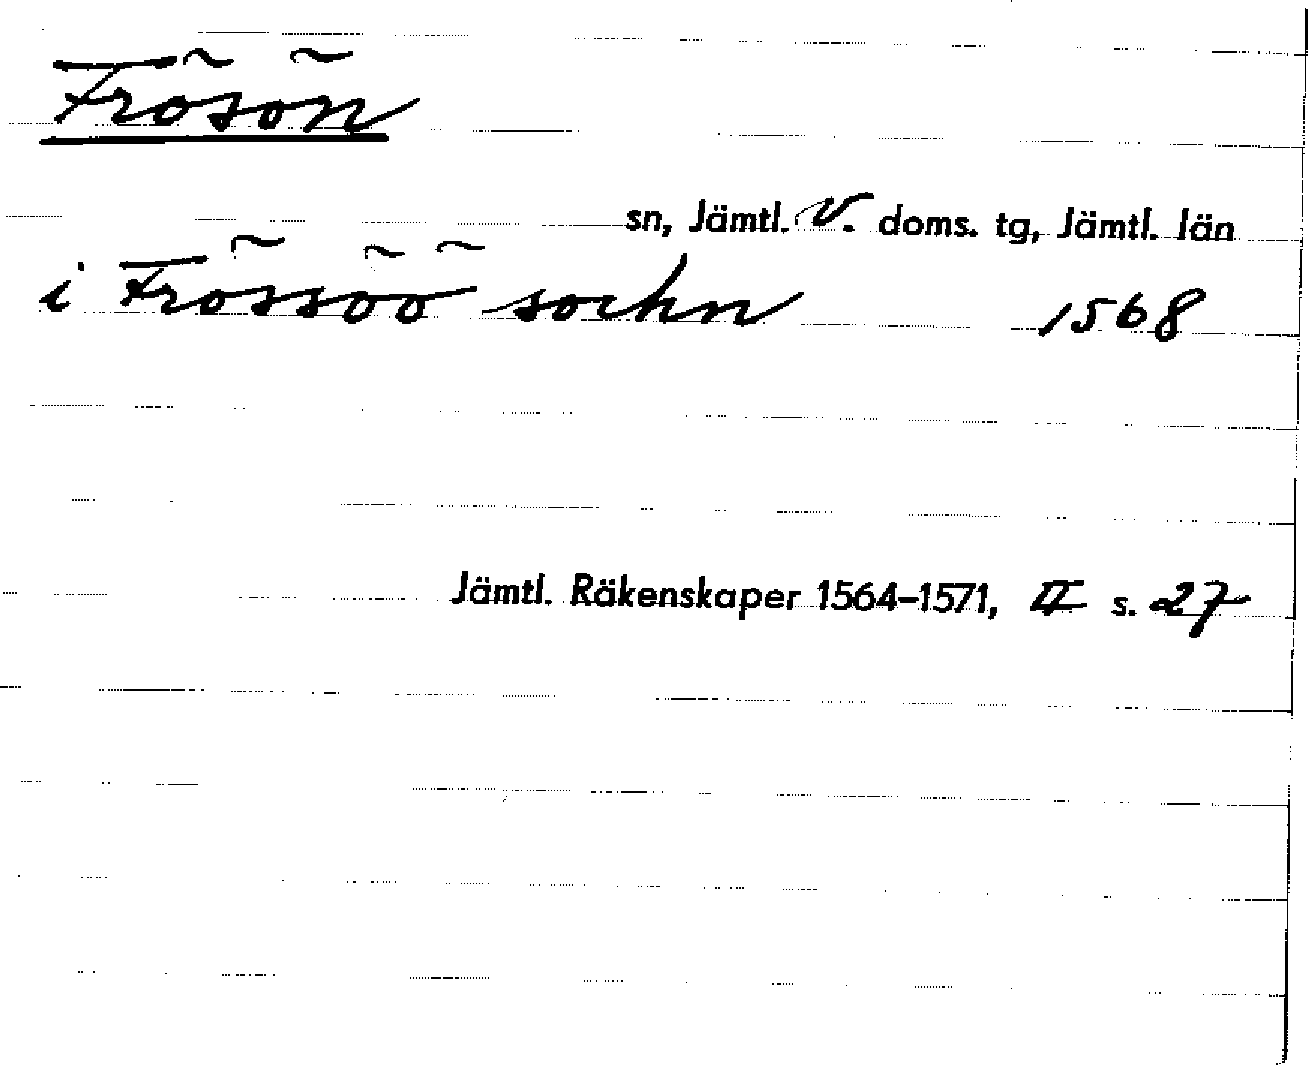 Frösön
sn, Jämtl. V. doms. tg, Jämtl. län
i Frössöö sochn 1568
Jämtl. Räkenskaper 1564–1571, II s. 27